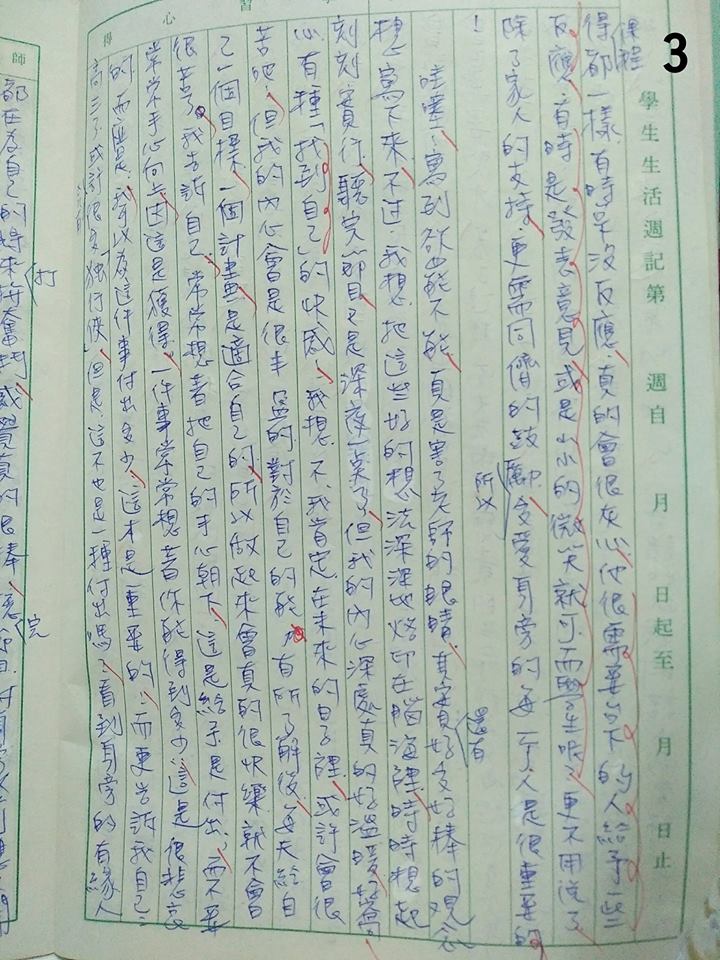 3
學生生活週記第 週自 月 日起至 月 日止
課程
得都一樣,有時早沒反應,真的會很灰心,他很需要台下的人給予一些
反應,有時是發表意見,或是小小的微笑就可,而學生呢?更不用說了,
除了家人的支持,更需同儕的鼓勵,支愛身旁的每一个人是很重要的
!
所以
哇噻!寫到欲罷不能,真是害了老師的眼睛,其實有好多好棒的觀念
還有
想寫下來,不过,我想,把這些好的想法深深地烙印在腦海裡,時時想起
刻刻實行,聽完節目又是深夜一點了,但我的內心深處真的好溫暖,好高
心,有種「找到自己」的快感,我想,不,我肯定,在未來的日子裡,或許會很
苦吧,但我的內心會是很丰富的,對於自己的能力有所了解後,每天給自
己一個目標,一個計畫,是適合自己的,所以做起來會真的很快樂,就不會
很苦了,我告訴自己,常常想著把自己的手心朝下,這是給予是付出,而不要
常常手心向上,因這是獲得,一件事常常想著你能得到多少,這是很悲哀
的,而應是,我以為這件事付出多少,這才是重要的,而更告訴我自己:
高三了,或許很多獨行俠,但是,這不也是一種付出嗎?看到身旁的有緣人
得 心 習 學
師
都在為自己的將來打拼奮鬥,感覺真的很棒,
打
院